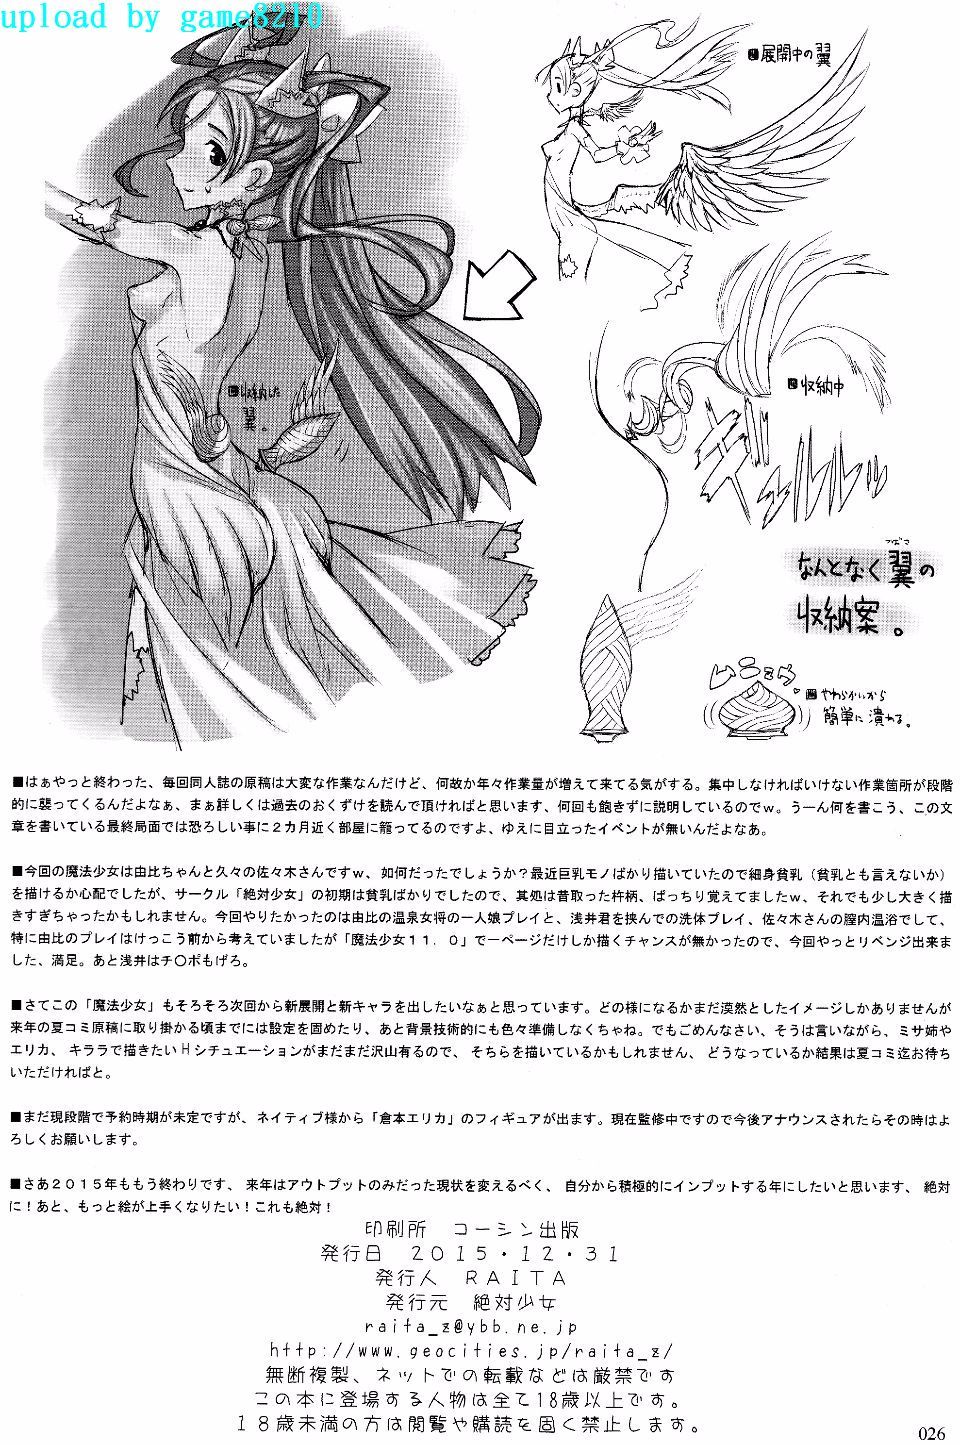 upload by game8210
展開中の翼
収納した
翼。
収納中
ギュルルルッ
つばさ
なんとなく翼の
収納案。
ムニュウ
やわらかいから
簡単に潰れる。
■はぁやっと終わった、毎回同人誌の原稿は大変な作業なんだけど、何故か年々作業量が増えて来てる気がする。集中しなければいけない作業箇所が段階
的に襲ってくるんだよなぁ、まぁ詳しくは過去のおくずけを読んで頂ければと思います、何回も飽きずに説明しているのでｗ。うーん何を書こう、この文
章を書いている最終局面では恐ろしい事に２カ月近く部屋に籠ってるのですよ、ゆえに目立ったイベントが無いんだよなあ。
■今回の魔法少女は由比ちゃんと久々の佐々木さんですｗ、如何だったでしょうか？最近巨乳モノばかり描いていたので細身貧乳（貧乳とも言えないか）
を描けるか心配でしたが、サークル「絶対少女」の初期は貧乳ばかりでしたので、其処は昔取った杵柄、ばっちり覚えてましたｗ、それでも少し大きく描
きすぎちゃったかもしれません。今回やりたかったのは由比の温泉女将の一人娘プレイと、浅井君を挟んでの洗体プレイ、佐々木さんの膣内温浴でして、
特に由比のプレイはけっこう前から考えていましたが「魔法少女１１．０」で一ページだけしか描くチャンスが無かったので、今回やっとリベンジ出来ま
した、満足。あと浅井はチ〇ポもげろ。
■さてこの「魔法少女」もそろそろ次回から新展開と新キャラを出したいなぁと思っています。どの様になるかまだ漠然としたイメージしかありませんが
来年の夏コミ原稿に取り掛かる頃までには設定を固めたり、あと背景技術的にも色々準備しなくちゃね。でもごめんなさい、そうは言いながら、ミサ姉や
エリカ、キララで描きたいＨシチュエーションがまだまだ沢山有るので、そちらを描いているかもしれません、どうなっているか結果は夏コミ迄お待ち
いただければと。
■まだ現段階で予約時期が未定ですが、ネイティブ様から「倉本エリカ」のフィギュアが出ます。現在監修中ですので今後アナウンスされたらその時はよ
ろしくお願いします。
■さあ２０１５年ももう終わりです、来年はアウトプットのみだった現状を変えるべく、自分から積極的にインプットする年にしたいと思います、絶対
に！あと、もっと絵が上手くなりたい！これも絶対！
印刷所　コーシン出版
発行日　２０１５・１２・３１
発行人　ＲＡＩＴＡ
発行元　絶対少女
raita_z@ybb.ne.jp
http://www.geocities.jp/raita_z/
無断複製、ネットでの転載などは厳禁です
この本に登場する人物は全て18歳以上です。
１８歳未満の方は閲覧や購読を固く禁止します。
026